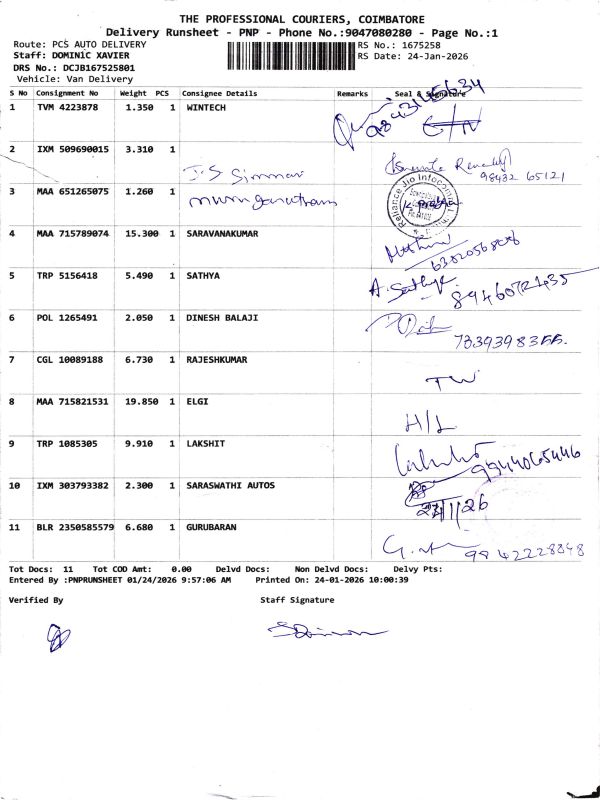 THE PROFESSIONAL COURIERS, COIMBATORE
Delivery Runsheet - PNP - Phone No.:9047080280 - Page No.:1
Route: PCS AUTO DELIVERY RS No.: 1675258
Staff: DOMINIC XAVIER RS Date: 24-Jan-2026
DRS No.: DCJB167525801
Vehicle: Van Delivery
S No Consignment No Weight PCS Consignee Details Remarks Seal & Signature
1 TVM 4223878 1.350 1 WINTECH
2 IXM 509690015 3.310 1 J.S Simman
98432 65121
3 MAA 651265075 1.260 1
Reliance Jio Infocomm
4 MAA 715789074 15.300 1 SARAVANAKUMAR
5 TRP 5156418 5.490 1 SATHYA A. Sathya
6 POL 1265491 2.050 1 DINESH BALAJI
7 CGL 10089188 6.730 1 RAJESHKUMAR TW
8 MAA 715821531 19.850 1 ELGI H/L
9 TRP 1085305 9.910 1 LAKSHIT 9944065446
10 IXM 303793382 2.300 1 SARASWATHI AUTOS
11 BLR 2350585579 6.680 1 GURUBARAN 9942228348
Tot Docs: 11 Tot COD Amt: 0.00 Delvd Docs: Non Delvd Docs: Delvy Pts:
Entered By :PNPRUNSHEET 01/24/2026 9:57:06 AM Printed On: 24-01-2026 10:00:39
Verified By Staff Signature